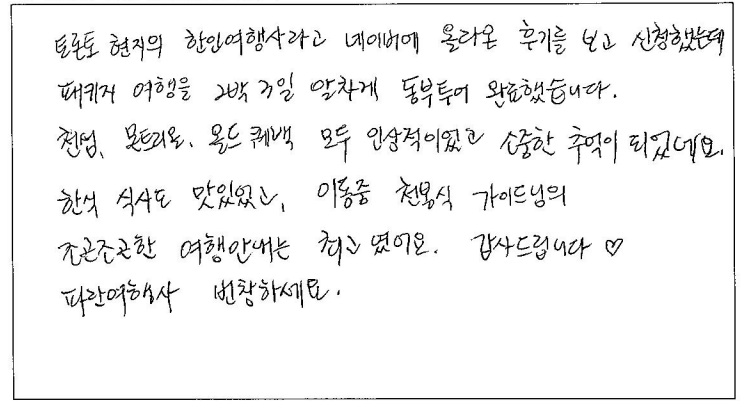 토론토 현지의 한인여행사라고 네이버에 올라온 후기를 보고 신청했는데
패키지 여행을 2박 3일 알차게 동부투어 완료했습니다.
천섬, 몬트리올, 올드 퀘백 모두 인상적이었고 소중한 추억이 되었네요.
한식 식사도 맛있었고, 이동중 천봉식 가이드님의
조곤조곤한 여행안내는 최고였어요. 감사드립니다 ♡
파란여행사 번창하세요.